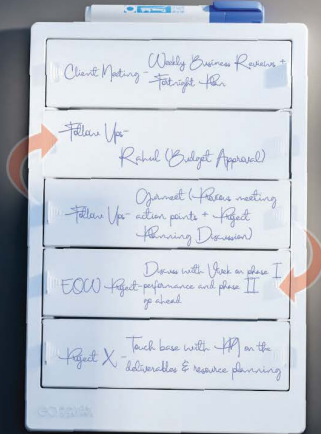 Client Meeting - Weekly Business Reviews +
Fortnight Plan
Follow Ups-
Rahul (Budget Approval)
Gurmeet (Previous meeting
Follow Ups- action points + Project
Planning Discussion)
Discuss with Vivek on phase I
EOW Project- performance and phase II
go ahead
Project X - Touch base with on the
deliverables & resource planning